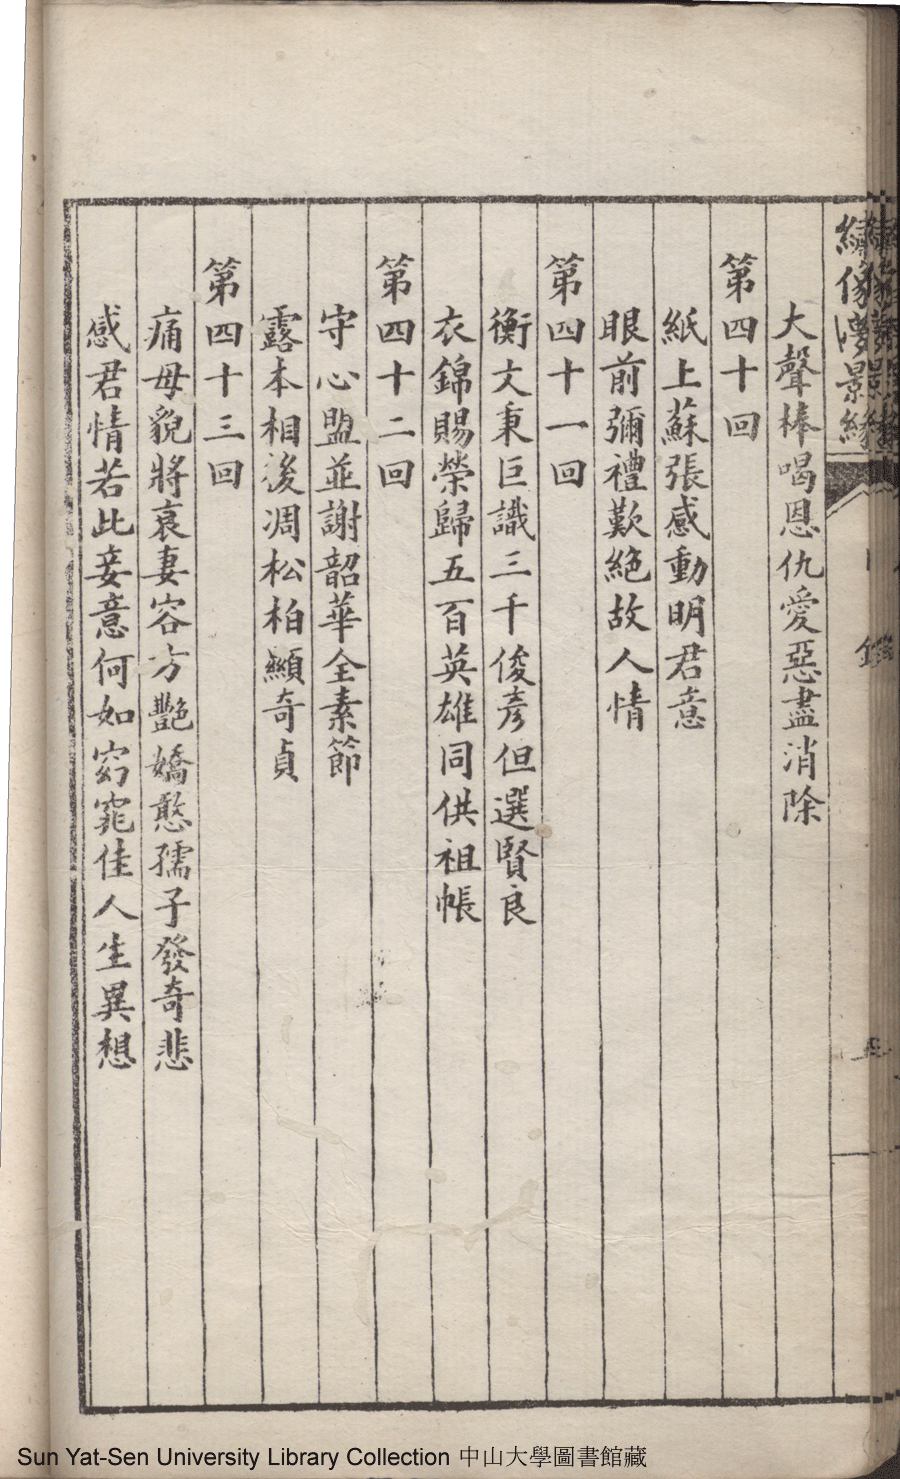 繡像夢景緣
大聲棒喝恩仇愛惡盡消除
第四十回
紙上蘇張感動明君意
眼前彌禮歎絕故人情
第四十一回
衡文秉巨識三千俊彥但選賢良
衣錦賜榮歸五百英雄同供祖帳
第四十二回
守心盟並謝韶華全素節
露本相後凋松柏顯奇貞
第四十三回
痛母貌將哀妻容方艷嬌憨孺子發奇悲
感君情若此妾意何如窈窕佳人生異想
Sun Yat-Sen University Library Collection 中山大學圖書館藏